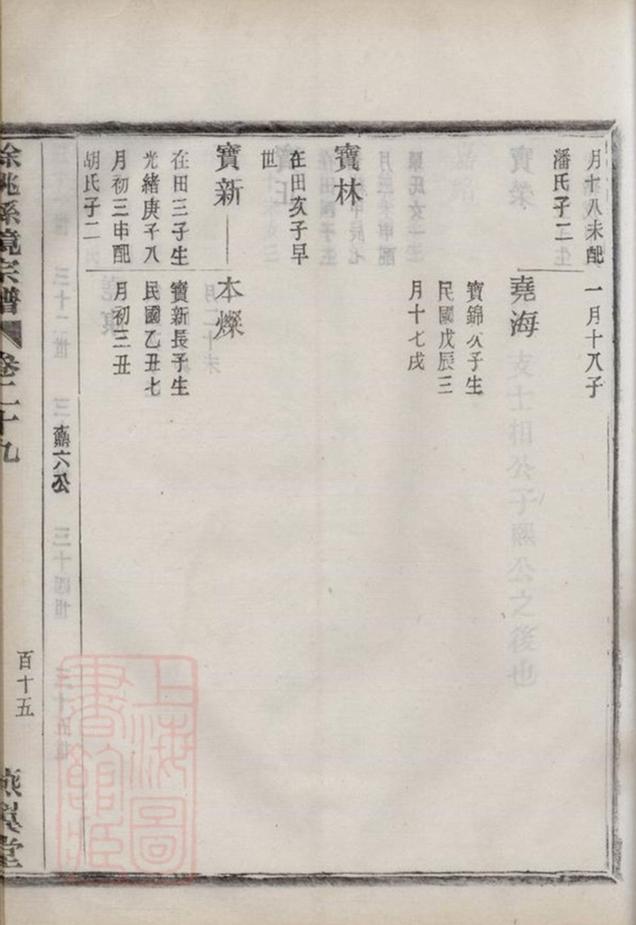 月十八未配
潘氏子二
一月十八子
堯海
寶錦次子生
民國戊辰三
月十七戌
寶林
在田亥子早
世
寶新
在田三子生
光緒庚子八
月初三申配
胡氏子二
本燦
寶新長子生
民國乙丑七
月初三丑
六公
餘姚孫境宗譜
卷二十九
百十五
燕翼堂
上海圖
書館藏